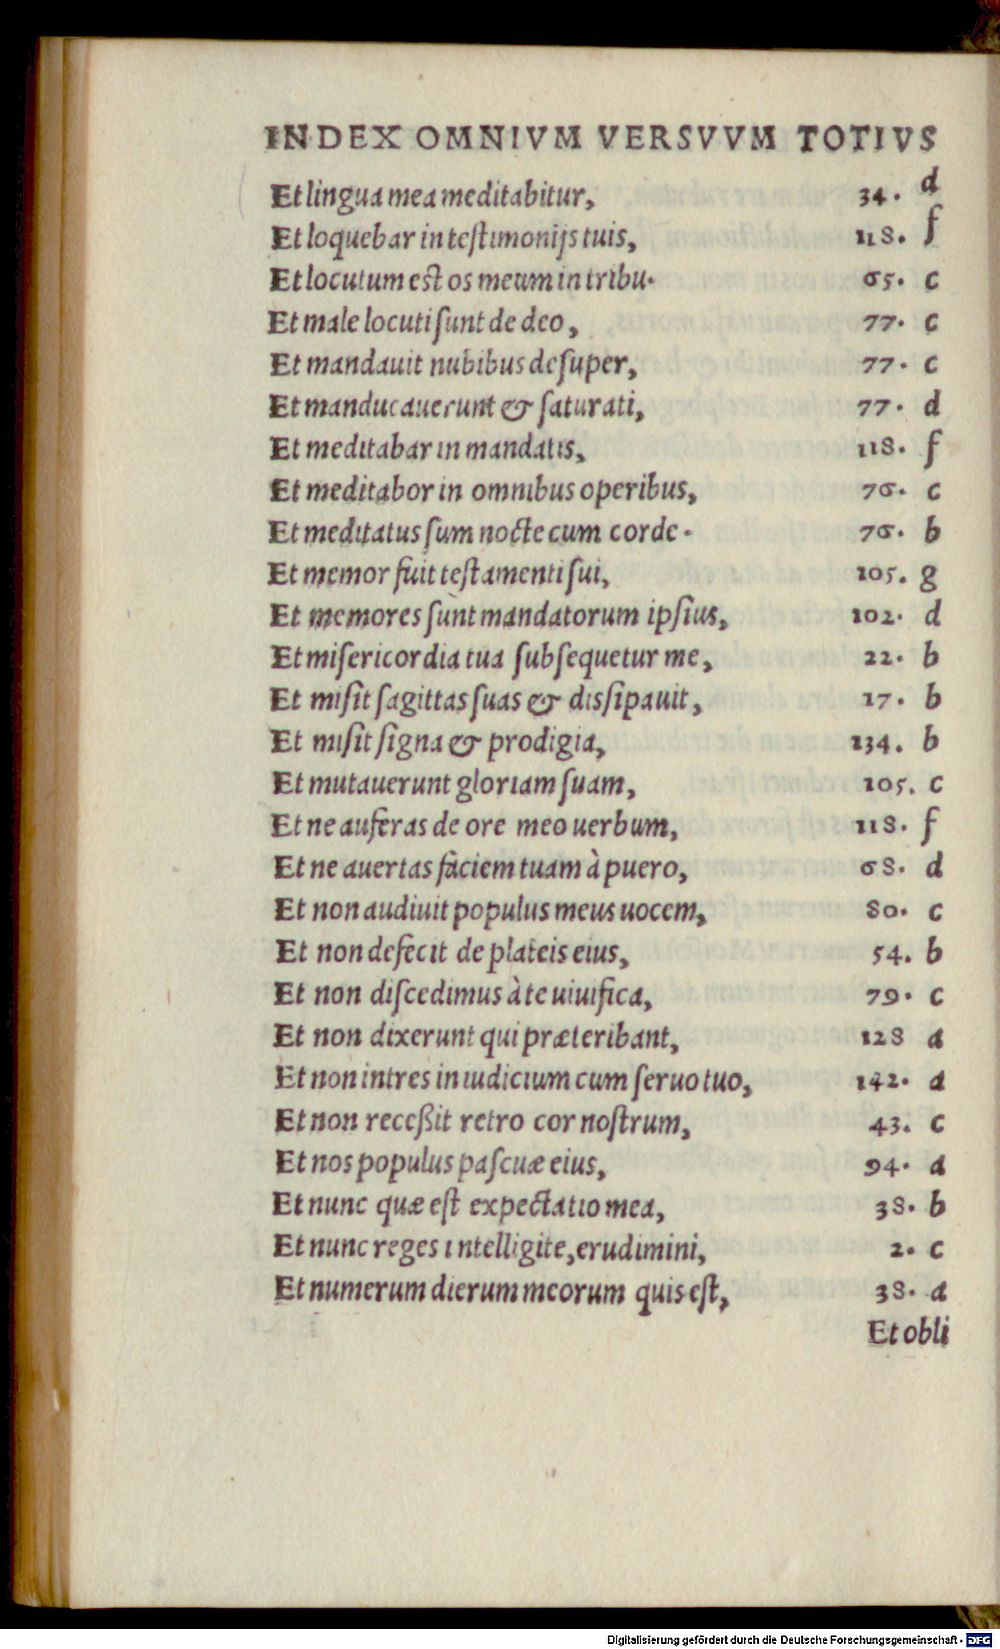 INDEX OMNIVM VERSVVM TOTIVS
Et lingua mea meditabitur, 34. d
Et loquebar in teſtimonijs tuis, 118. f
Et locutum eſt os meum in tribu. 65. c
Et male locuti ſunt de deo, 77. c
Et mandauit nubibus deſuper, 77. c
Et manducauerunt & ſaturati, 77. d
Et meditabar in mandatis, 118. f
Et meditabor in omnibus operibus, 76. c
Et meditatus ſum nocte cum corde. 76. b
Et memor fuit teſtamenti ſui, 105. g
Et memores ſunt mandatorum ipſius, 102. d
Et miſericordia tua ſubſequetur me, 22. b
Et miſit ſagittas ſuas & dissipauit, 17. b
Et miſit ſigna & prodigia, 134. b
Et mutauerunt gloriam ſuam, 105. c
Et ne auferas de ore meo uerbum, 118. f
Et ne auertas faciem tuam à puero, 68. d
Et non audiuit populus meus uocem, 80. c
Et non defecit de plateis eius, 54. b
Et non diſcedimus à te uiuifica, 79. c
Et non dixerunt qui præteribant, 128 a
Et non intres in iudicium cum ſeruo tuo, 142. a
Et non receßit retro cor noſtrum, 43. c
Et nos populus paſcuæ eius, 94. a
Et nunc quæ eſt expectatio mea, 38. b
Et nunc reges intelligite, erudimini, 2. c
Et numerum dierum meorum quis eſt, 38. a
Et obli
Digitalisierung gefördert durch die Deutsche Forschungsgemeinschaft - DFG